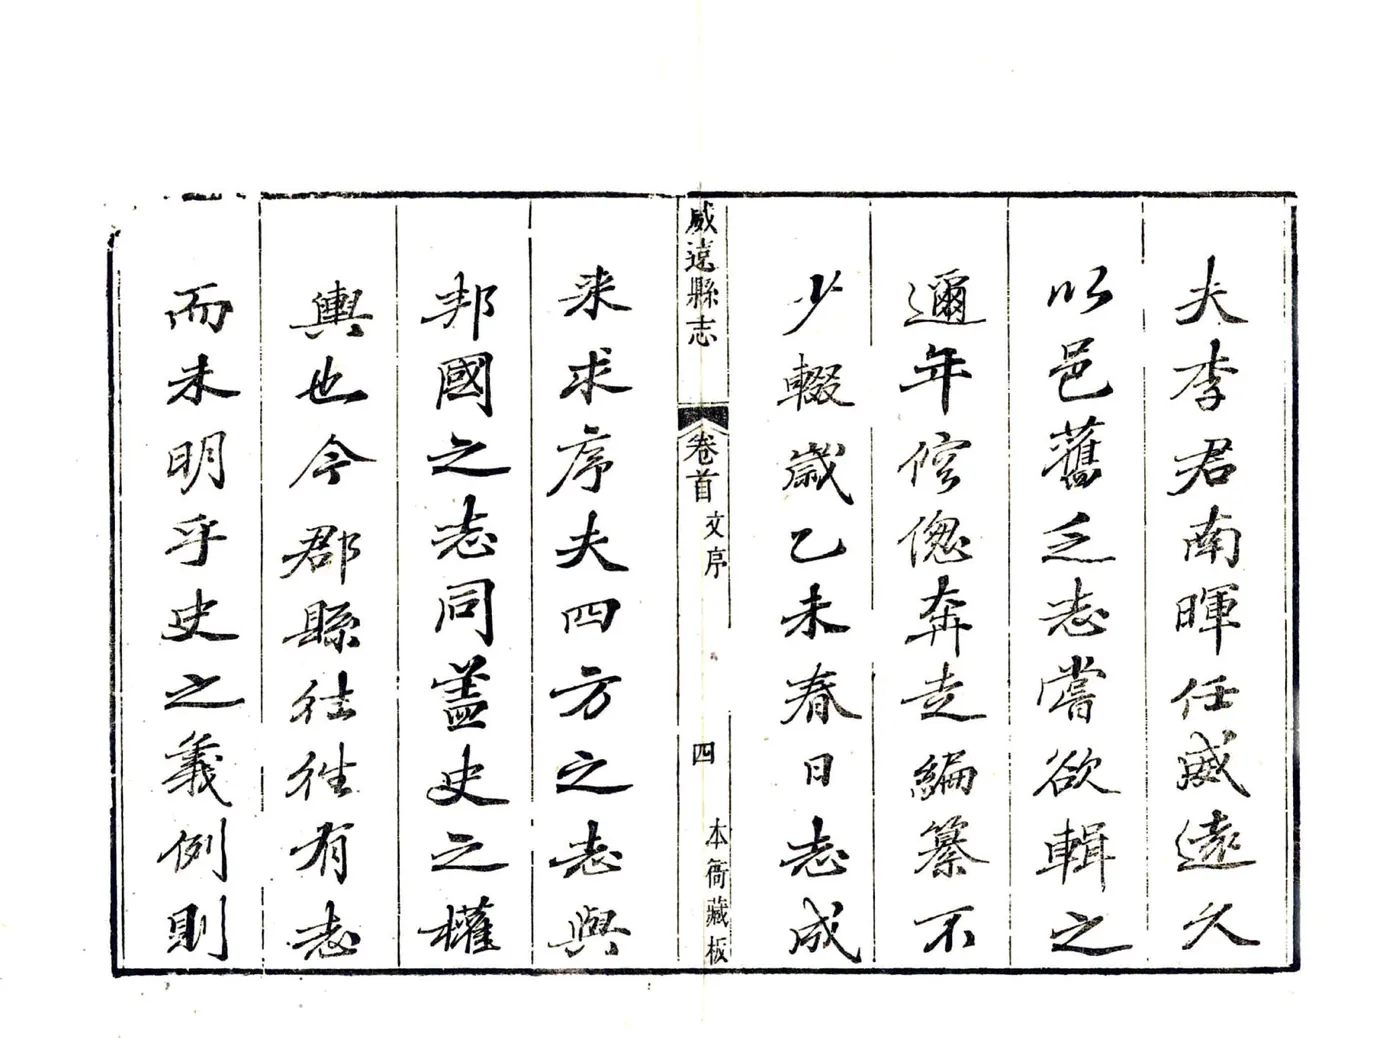 夫李君南暉任威遠久
以邑舊乏志嘗欲輯之
邇年倥傯奔走編纂不
少輟歲乙未春日志成
威遠縣志
卷首
文序
四
本衙藏板
来求序夫四方之志與
邦國之志同蓋史之權
輿也今郡縣往往有志
而未明乎史之義例則